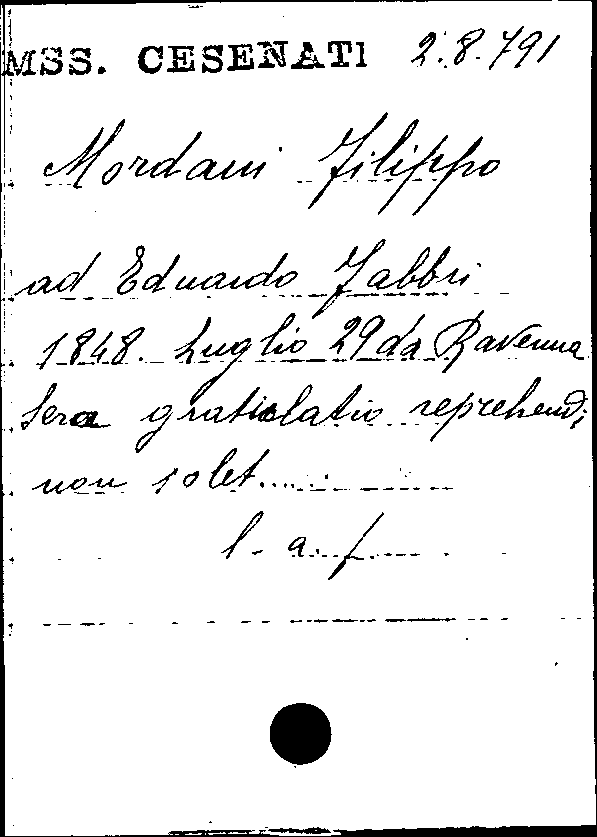 MSS. CESENATI 2.8.791
Mordani Filippo
ad Eduardo Fabbri
1848. Luglio 29 da Ravenna
Sera gratulatio reprehendi
non solet.....
l. a. f.